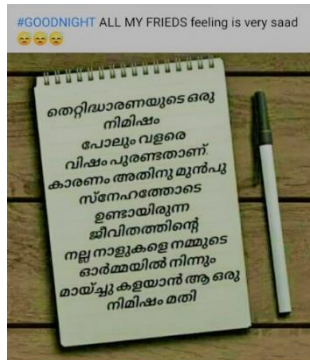 #GOODNIGHT ALL MY FRIEDS feeling is very saad
തെറ്റിദ്ധാരണയുടെ ഒരു
നിമിഷം
പോലും വളരെ
വിഷം പുരണ്ടതാണ്.
കാരണം അതിനു മുൻപു
സ്നേഹത്തോടെ
ഉണ്ടായിരുന്ന
ജീവിതത്തിന്റെ
നല്ല നാളുകളെ നമ്മുടെ
ഓർമ്മയിൽ നിന്നും
മായ്ച്ചു കളയാൻ ആ ഒരു
നിമിഷം മതി